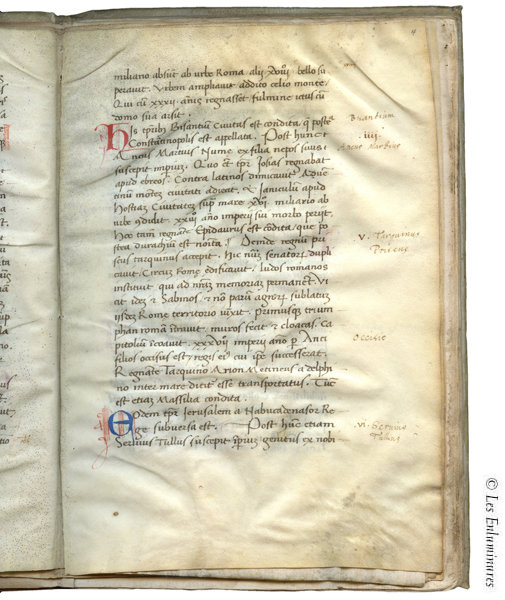 miliario absūt ab urbe Roma alij xviij bello su
peravit. Urbem ampliavit addito celio monte,
Qui cū xxxii annis regnasset fulmine ictus cū
domo sua arsit.
His tpribus Bisantiū Civitas est condita, q̄ postea
Constātinopolis est appellata. Post hunc
Ancus Martius Nume ex filia nepos
suscepit imperiū. Quo tpr Iosias regnabat
apud ebreos. Contra latinos dimicavit Aven
tinū mōtem civitati adiecit, & Ianiculū apud
Hostiā Civitatem sup mare xvi miliario ab
urbe cōdidit. xxiij año imperij sui morbo perijt.
Hoc tam regnāte Epidaurus est cōdita, que po
stea durachiū est Deinde regnū pri
scus tarquinus accepit. Hic nūm senatorū dupli
cavit, Circum Rome edificavit, ludos romanos
instituit qui ad nr̄am memoriam permanent. Vi
cit idē & Sabinos & nō parū agrorū sublatū
ijsdē Rome territorio iūxit, primusque trium
phan romā itravit, muros fecit & cloacas. Ca
pitoliū īcoavit. xxxvij imperij anno per Anci
filios occisus est regis ei cui ipe successerat.
Regnāte Tarquino Arion Metineus a delphi
no in mare dicit esse transportatus. Tūc
est etiam Massilia condita.
Eodem tpr Jerusalem a Nabucadenasor Re
ge subversa est. Post hunc etiam
Servius Tullus suscepit īperiū genitus ex nobi
Bisantium
iiij
Ancus Martius
V. Tarquinus
Priscus
Occisio
vi. Servius
Tullus
© Les Enluminures